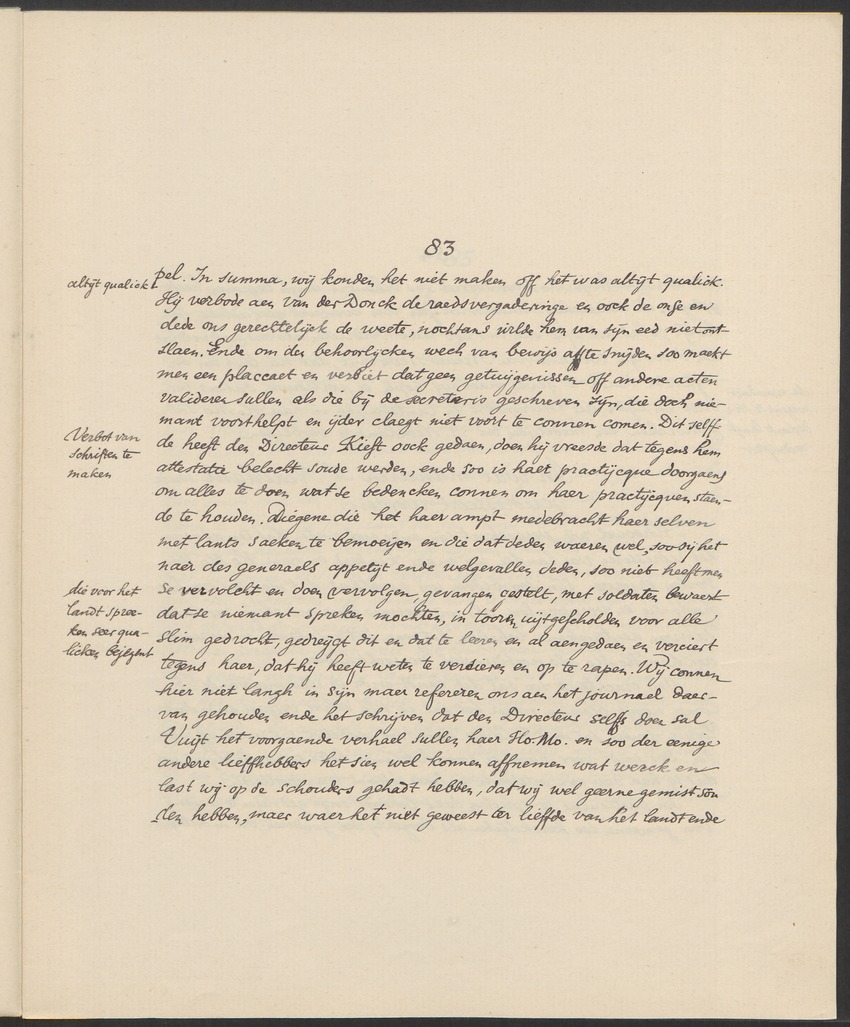 83
altijt qualick
pel. In summa, wij konden het niet maken off het was altijt qualick.
Hij verbode aen van der Donck de raedsvergaderinge en oock de onse en
dede ons gerechtelijck de weete, nochtans wilde hem van sijn eed niet ont
slaen. Ende om den behoorlycken wech van bewijs aff te snijden soo maekt
men een placcaet en verbiet dat geen getuijgenissen off andere acten
valideren sullen als die bij de secreteris geschreven sijn, die doch nie-
mant voorthelpt en ijder claegt niet voort te connen comen. Dit selff
Verbot van
schriften te
maken
de heeft den Directeur Kieft oock gedaen, doen hij vreesde dat tegens hem
attestatie belecht soude werden, ende soo is haer practijcque doorgaens
om alles te doen wat se bedencken connen om haer practijcquen staen-
de te houden. Diegene die het haer ampt medebracht haer selven
met lants saeken te bemoeijen en die dat deden waeren wel, soo sij het
naer des generaels appetijt ende welgevallen deden, soo niet heeft men
die voor het
landt spree-
ken seer qua-
licken bejegent
se vervolcht en doen vervolgen, gevangen gestelt, met soldaten bewaert
datse niemant spreken mochten, in tooren uijtgescholden voor alle
slim gedrocht, gedreijgt dit en dat te leeren en al aengedaen en verciert
tegens haer, dat hij heeft weten te versieren en op te rapen. Wij connen
hier niet langh in sijn maer refereren ons aen het journael daer-
van gehouden ende het schrijven dat den Directeur selffs doen sal
Vuijt het voorgaende verhael sullen haer Ho: Mo. en soo der eenige
andere lieffhebbers het sien wel konnen affnemen wat werck en
last wij op de schouders gehadt hebben, dat wij wel geerne gemist sou
den hebben, maer waer het niet geweest ter lieffde van het landt ende